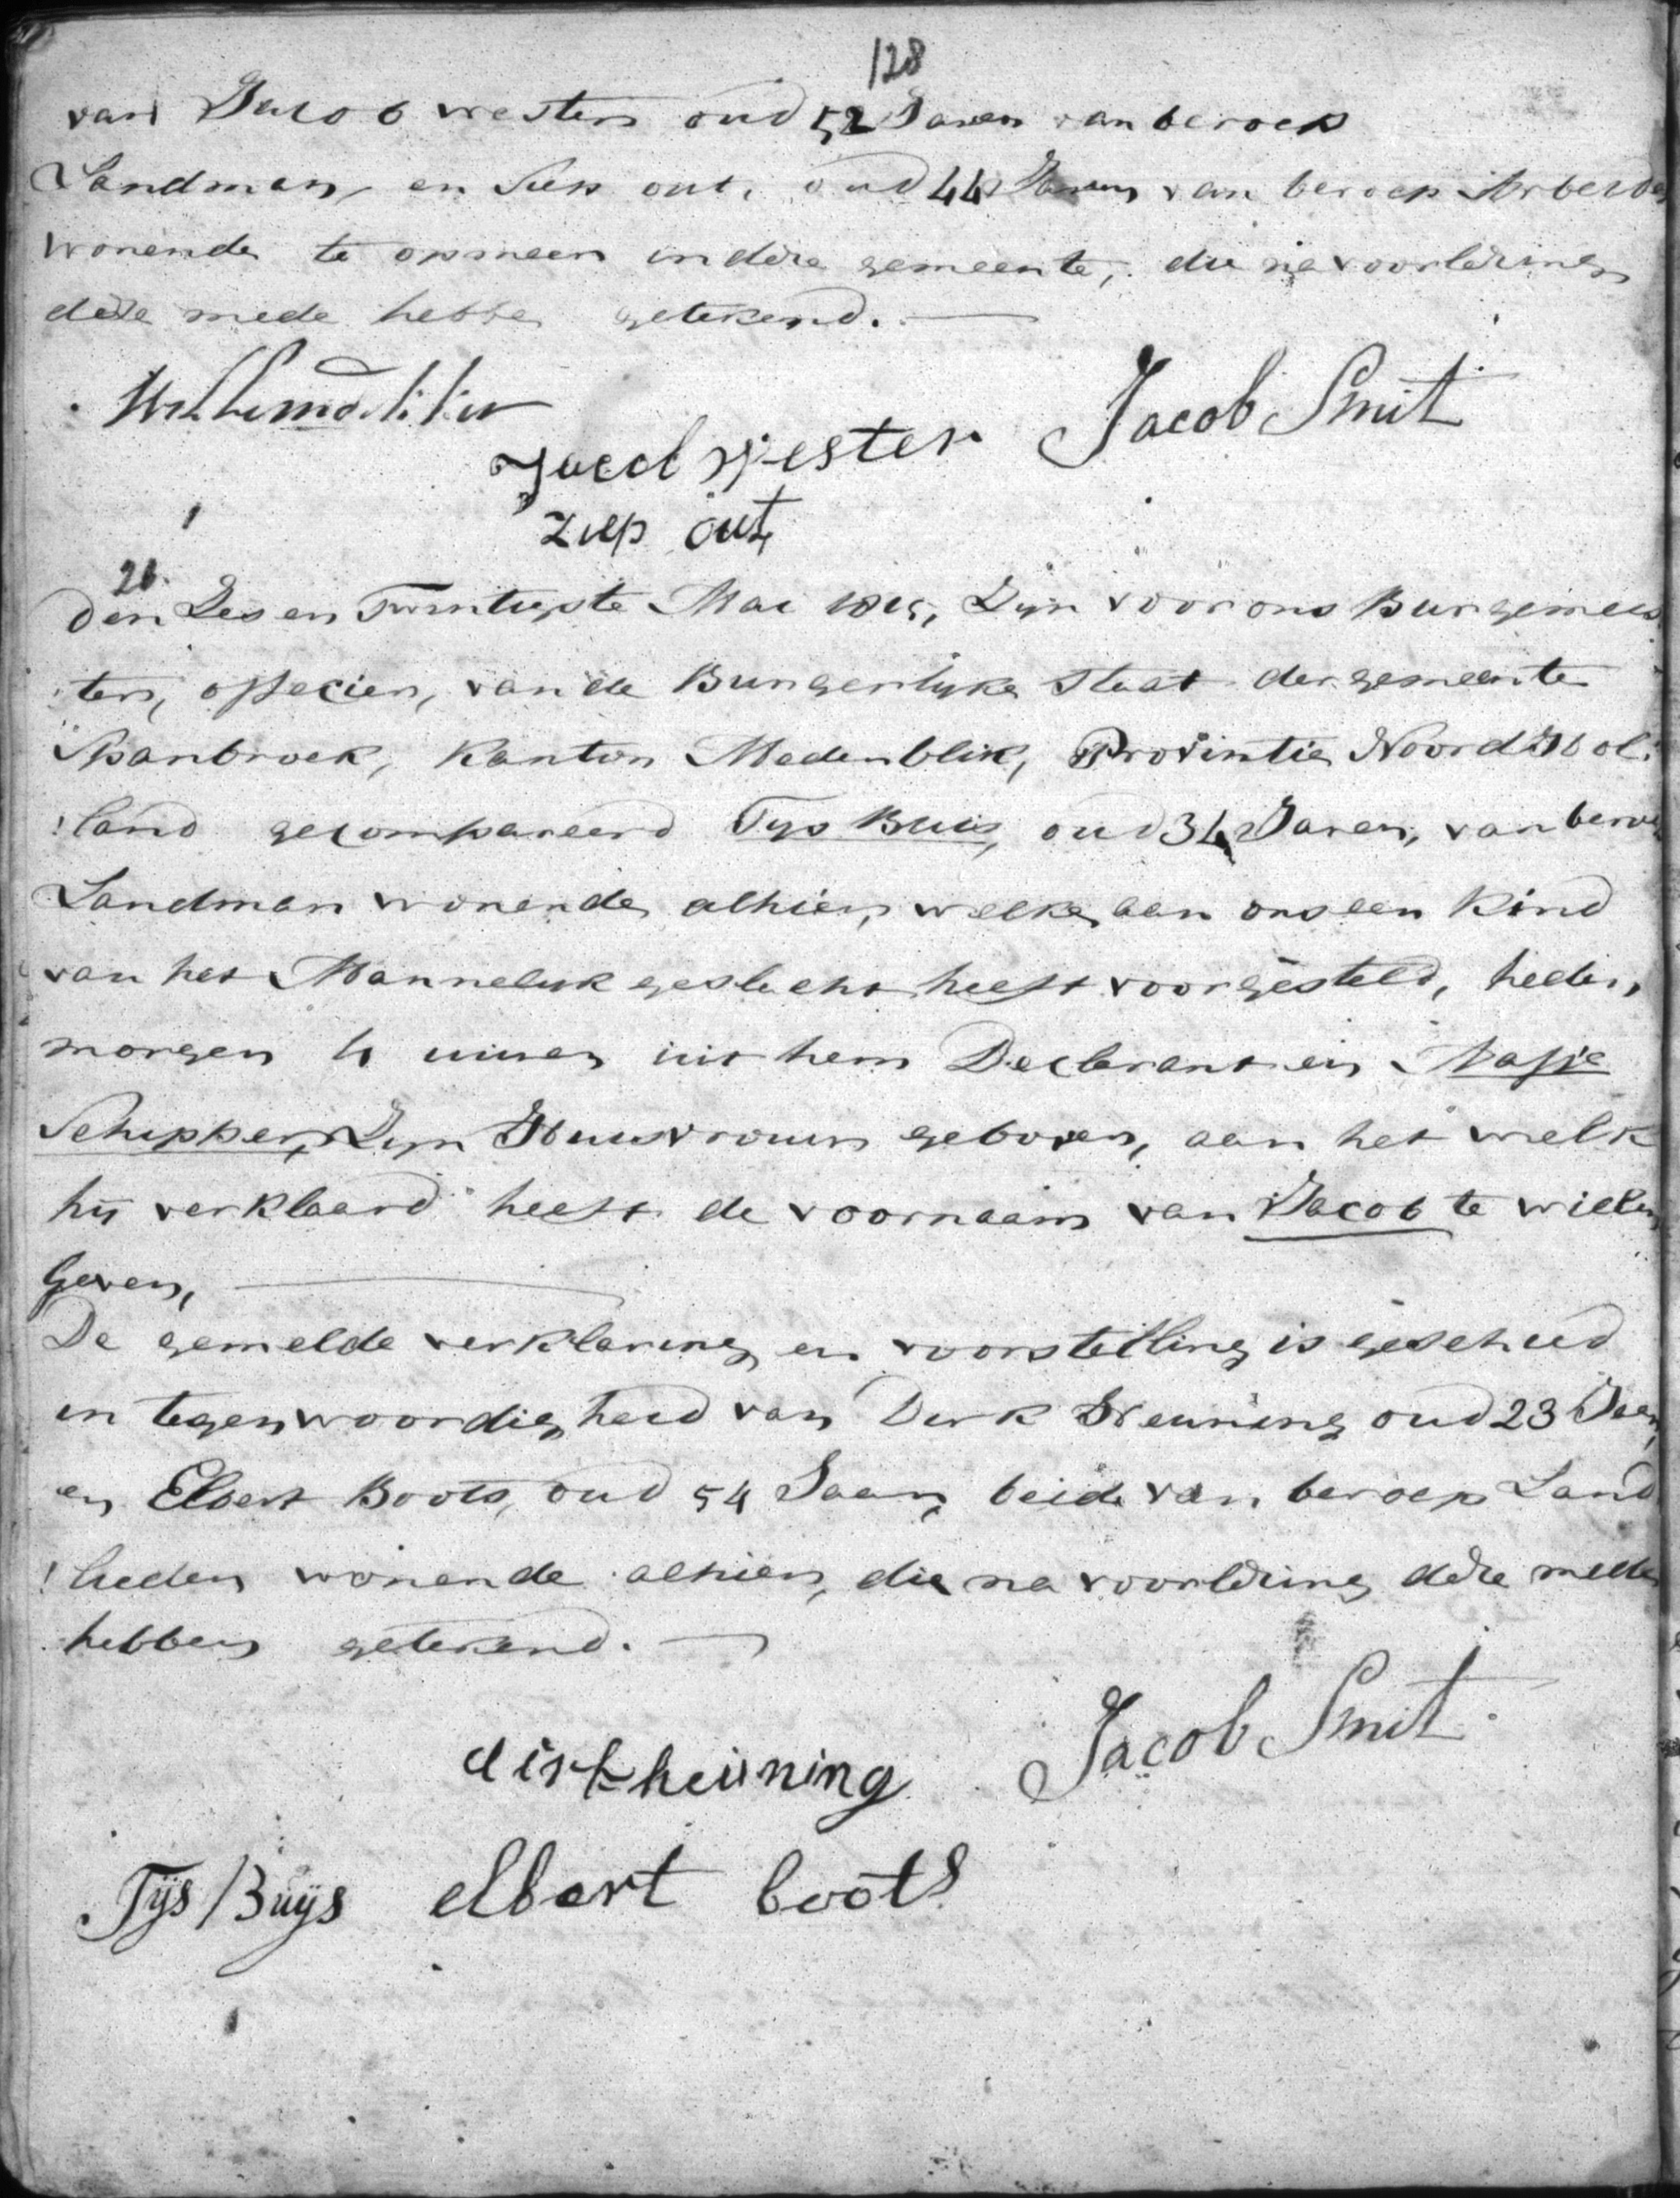 128
van Jacob wester oud 52 Jaren van beroep
Landman, en Siep out, oud 44 Jaren van beroep Arbeider
wonende te opmeer in deze gemeente, die na voorlezing
deze mede hebbe getekend.
Jacob wester Jacob Smit
ziep out
26.
Den Zes en Twintigste Mai 1815, Zijn voor ons Burgemees
ter, officier, van de Burgerlyke Staat der gemeente
Spanbroek, Kanton Medenblik, Provintie Noord Hol:
:land gecompareerd Tys Buis, oud 34 Jaren, van beroep
Landman wonende alhier, welke aan ons een Kind
van het Mannelyk geslacht heeft voorgesteld, heden
morgen 4 uuren uit hem Declarant en Aafje
Schipper, Zyn Huusvrouw geboren, aan het welk
hij verklaard heeft de voornaam van Jacob te willen
Geven,
De gemelde verklaring en voorstelling is geschied
in tegenwoordigheid van Dirk Breuning oud 23 Jaar,
en Elbert Boots, oud 54 Jaar, beide van beroep Land
:lieden wonende alhier, die na voorlezing deze mede
hebben getekend.
dirk breuning Jacob Smit
Tÿs Buÿs elbert boots